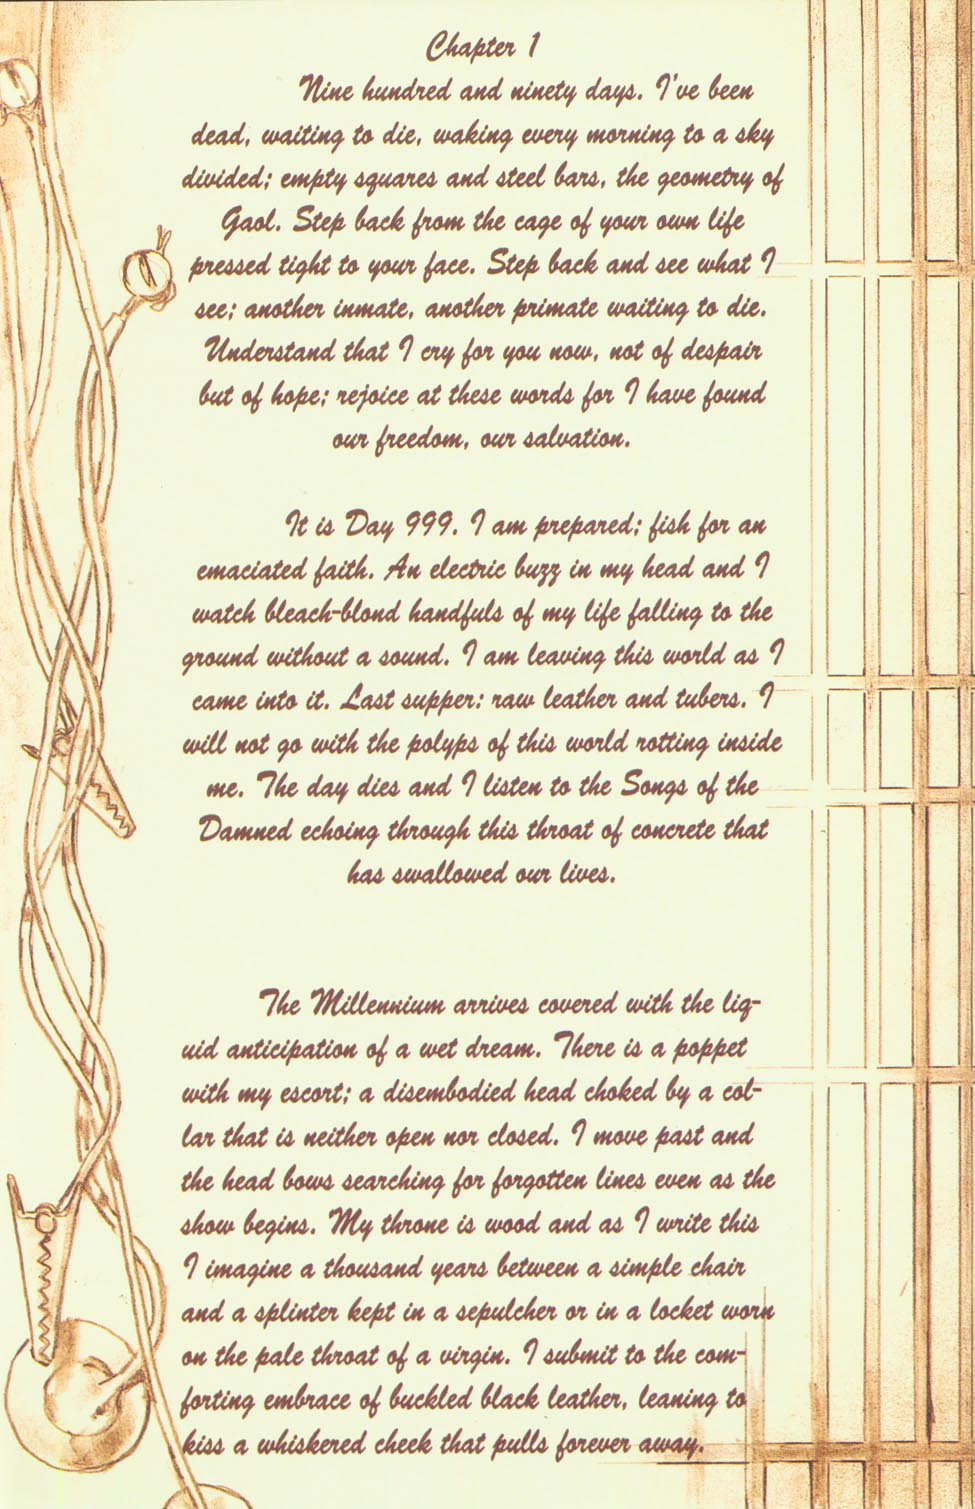 Chapter 1
Nine hundred and ninety days. I've been
dead, waiting to die, waking every morning to a sky
divided; empty squares and steel bars, the geometry of
Gaol. Step back from the cage of your own life
pressed tight to your face. Step back and see what I
see; another inmate, another primate waiting to die.
Understand that I cry for you now, not of despair
but of hope; rejoice at these words for I have found
our freedom, our salvation.
It is Day 999. I am prepared; fish for an
emaciated faith. An electric buzz in my head and I
watch bleach-blond handfuls of my life falling to the
ground without a sound. I am leaving this world as I
came into it. Last supper: raw leather and tubers. I
will not go with the polyps of this world rotting inside
me. The day dies and I listen to the Songs of the
Damned echoing through this throat of concrete that
has swallowed our lives.
The Millennium arrives covered with the liq-
uid anticipation of a wet dream. There is a poppet
with my escort; a disembodied head choked by a col-
lar that is neither open nor closed. I move past and
the head bows searching for forgotten lines even as the
show begins. My throne is wood and as I write this
I imagine a thousand years between a simple chair
and a splinter kept in a sepulcher or in a locket worn
on the pale throat of a virgin. I submit to the com-
forting embrace of buckled black leather, leaning to
kiss a whiskered cheek that pulls forever away.